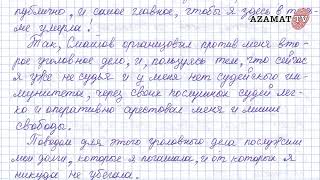 AZAMAT TV
публично, и самое главное, чтобы я здесь в тюрь-
ме умерла!
Так, Смаилов организовал против меня вто-
рое уголовное дело, и, пользуясь тем, что сейчас
я уже не судья и у меня нет судейского им-
мунитета, через своих послушных судей лег-
ко и оперативно арестовал меня и лишил
свободы.
Поводом для этого уголовного дела послужили
мои долги, которые я погашала, и от которых я
никуда не убегала.